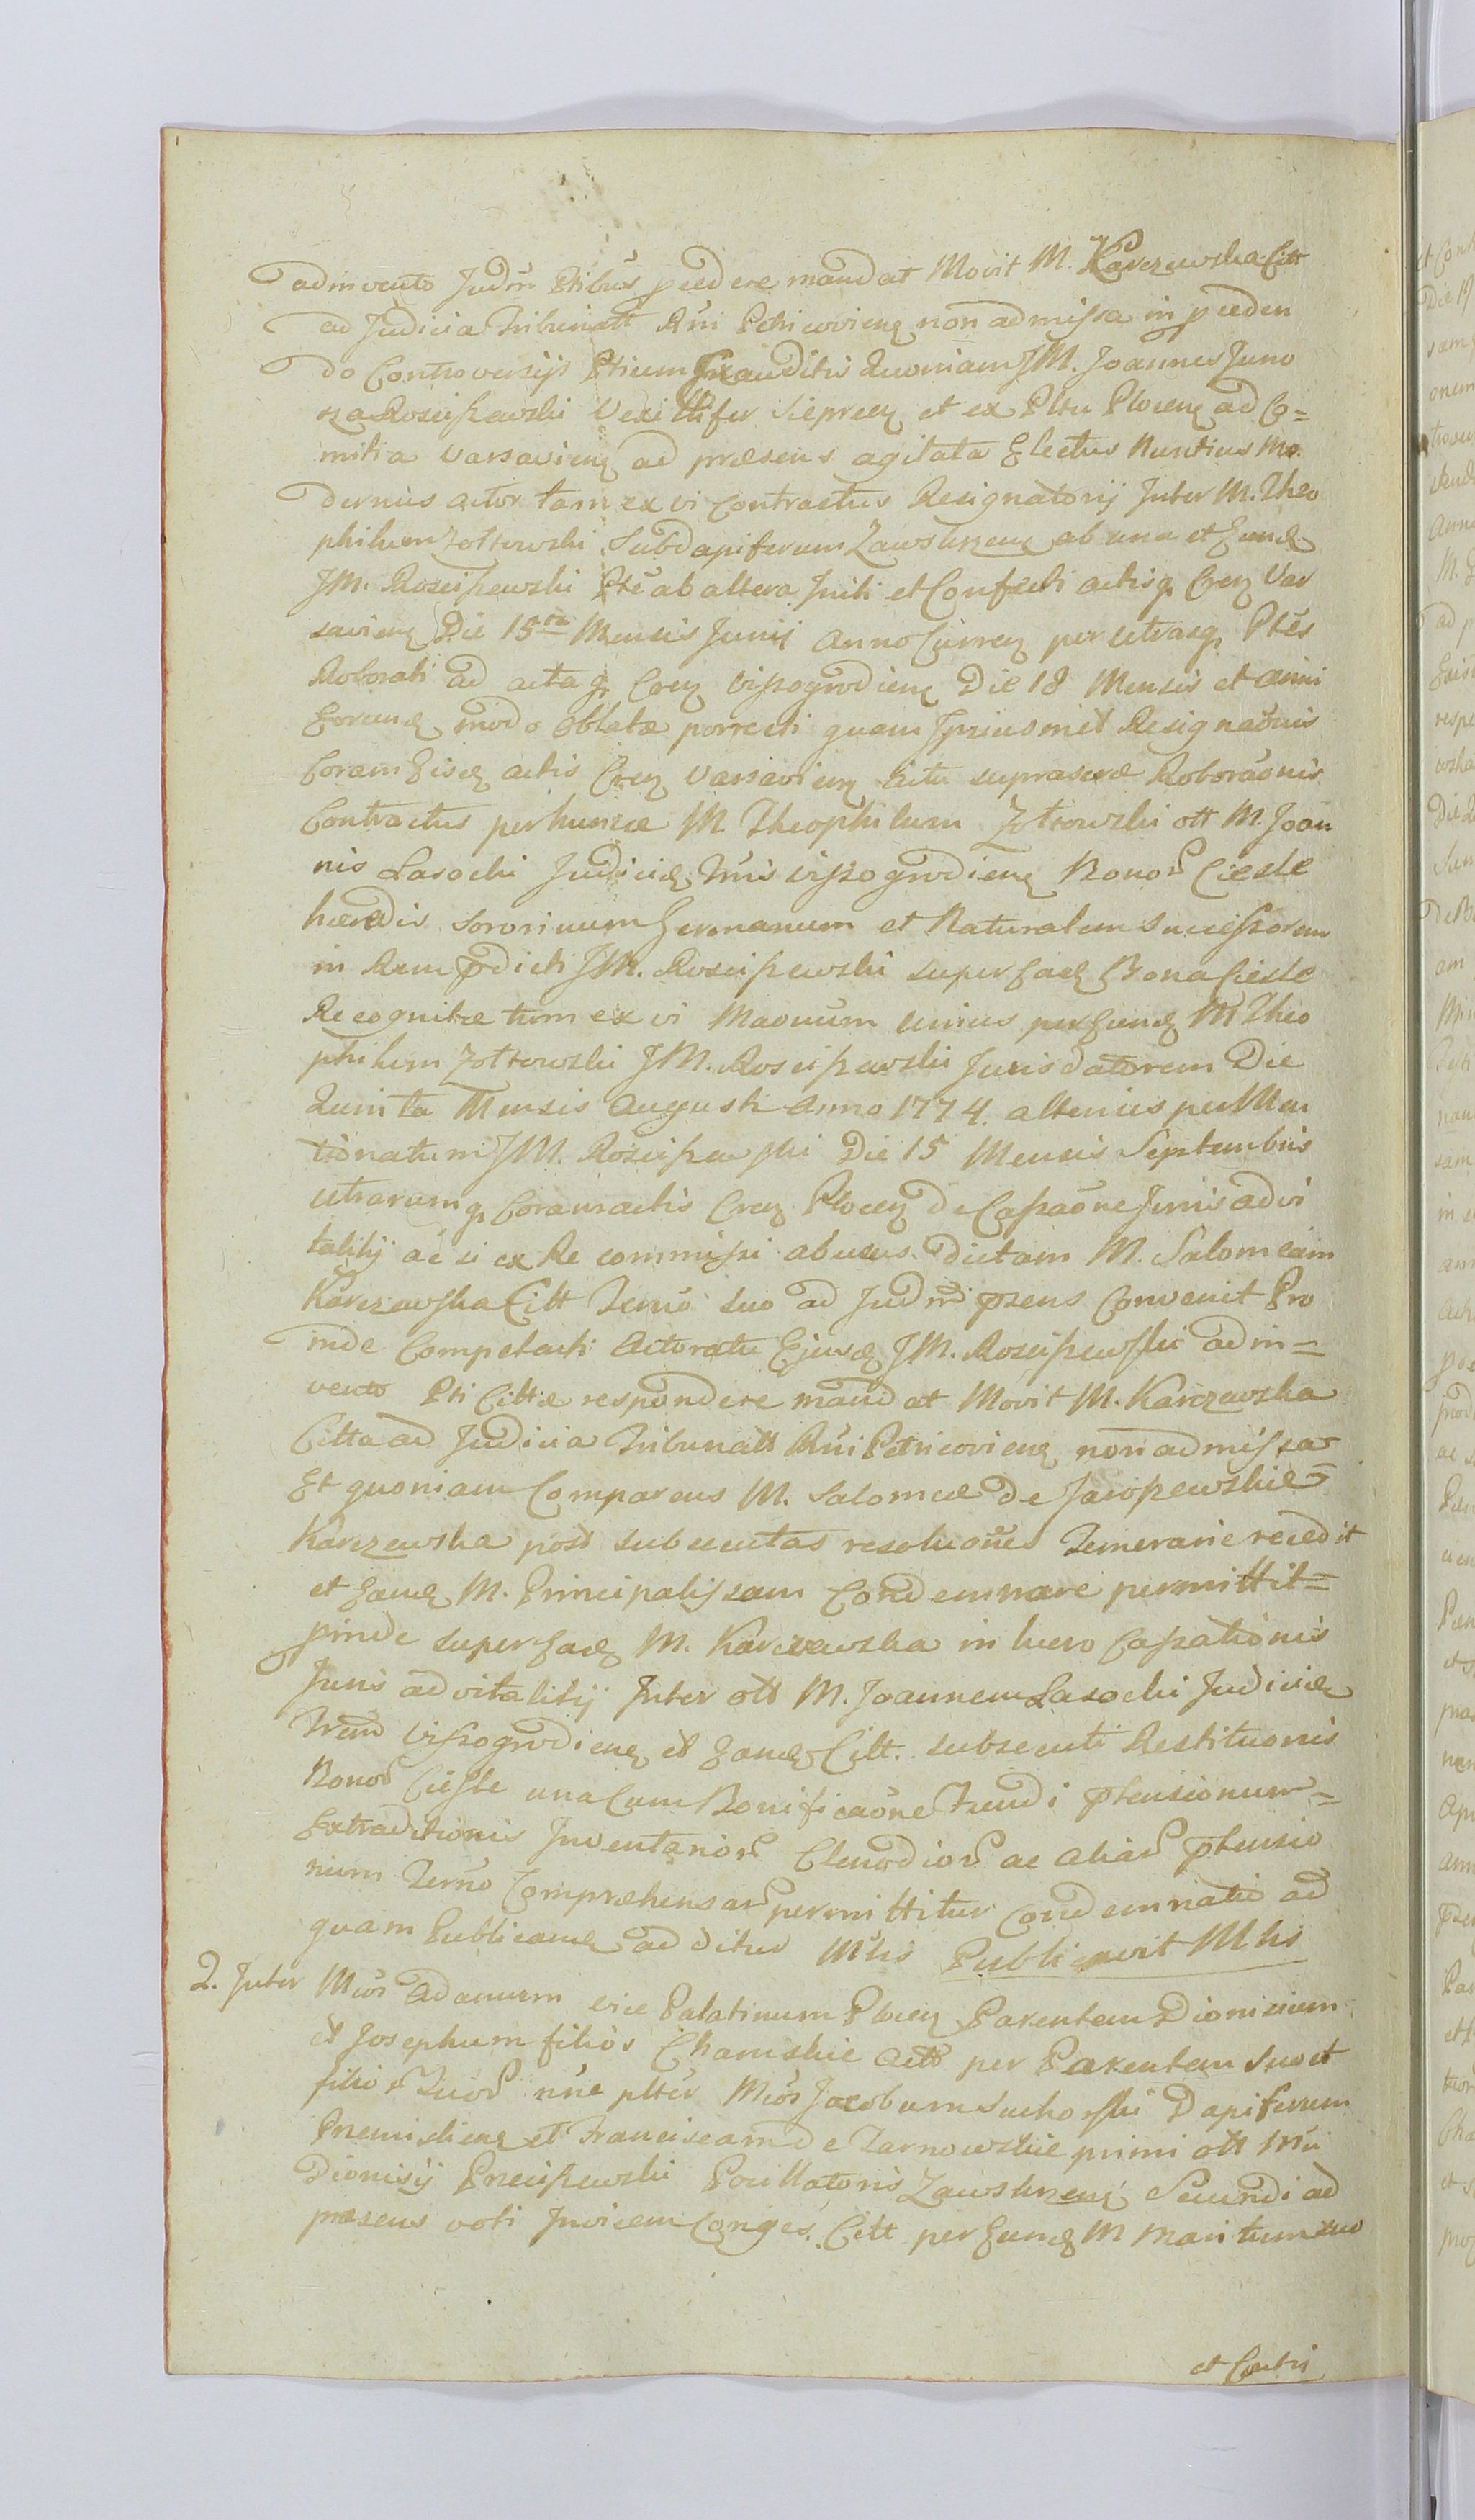 adinvento Judm Ptibus pcedere mandat Movit M. Karczewska Citt
ad Judicia Tribunatt Rni Petricovien non admissa in pceden
do Controversijs Ptium Exauditis Quoniam JM. Joannes Juno
sza Rosciszewski Vexillifer Sieprcen et ex Pltu Plocen ad Co=
mitia Varsavien ad præsens agitata Electus Nuntius Mo
dernus actor tam ex vi Contractus Resignatorij Inter M. Theo
philum Zottowski Subdapiferum Zawskrzen ab una et Eund
JM. Rosciszewski Pte ab altera Initi et Confecti actisq Cren Var
savien Die 15ta Mensis Junij Anno Curren per utrasq Ptes
Roborati ad actaq Cren Viszogrodien Die 18 Mensis et anni
Eorund modo Oblatæ porrecti quam Ipsiusmet Resignaonis
Coram Eisd actis Cren Varsavien ritu suprascræ Roboraonis
Contractus per huncce M. Theophilum Zotrowski ott M. Joan
nis Lasocki Judicis Tris Viszogrodien Bonor Ciesle
hæredis sororinum Germanum et Naturalem Successorem
in Rem pdicti JM. Rosciszewski super Ead Bona Ciesle
Recognitæ tum ex vi Maonum unius per Eund M Theo
philum Zottowski JM. Rosciszewski Jurisdatorem Die
Quinta Mensis Augusti Anno 1774. alterius per Men
tionatum JM. Rosciszewski Die 15 Mensis Septembris
utrarumq Coram actis Cren Plocen de Cassaone Juris advi
talitij ac si ex Re commissi abusus. dictam M. Salomeam
Karczewska Citt Termo suo ad Judm psens Convenit Pro
inde Competenti Actoratu Ejusd JM. Rosciszewski adin=
vento Pti Cittæ respondere mandat Movit M. Karczewska
Citta ad Judicia Tribunatt Rni Petricovien non admissa
Et quoniam Comparens M. Salomeæ de Jaroszewskie
Karczewska post subsecutas resoluones Temerarie recedit
et Eand M. Principalissam Condemnare permittit=
pinde super Ead M. Karczewska in lucro Cassationis
Juris advitalitij Inter ott M. Joannem Lasocki Judicem
Trem Viszogrodien et Eand Citt. subsecuti Restituonis
Bonor Ciesle una Cum Bonificaone Fundi ptensionum=
Extraditionis Inventarior Clenodior ac aliar ptensio
num Termo Compræhensar permittitur Condemnatio ad
quam Publicand additur Mtlis Publicavit Mtlis
2. Inter Mcos Adamum vice Palatinum Plocen Parentem Dionisium
et Josephum filios Chamskie Actt per Parentem suo et
filior Suor nne plter Mcos Jacobum Suchorski Dapiferum
Premislien et Franciscam de Tarnowskie primi ott Mci
Dionisij Przeciszewski Pocillatoris Zawskrzen Secundi ad
præsens voti Invicem Conges. Citt per Eund M Maritum suo
et Contri